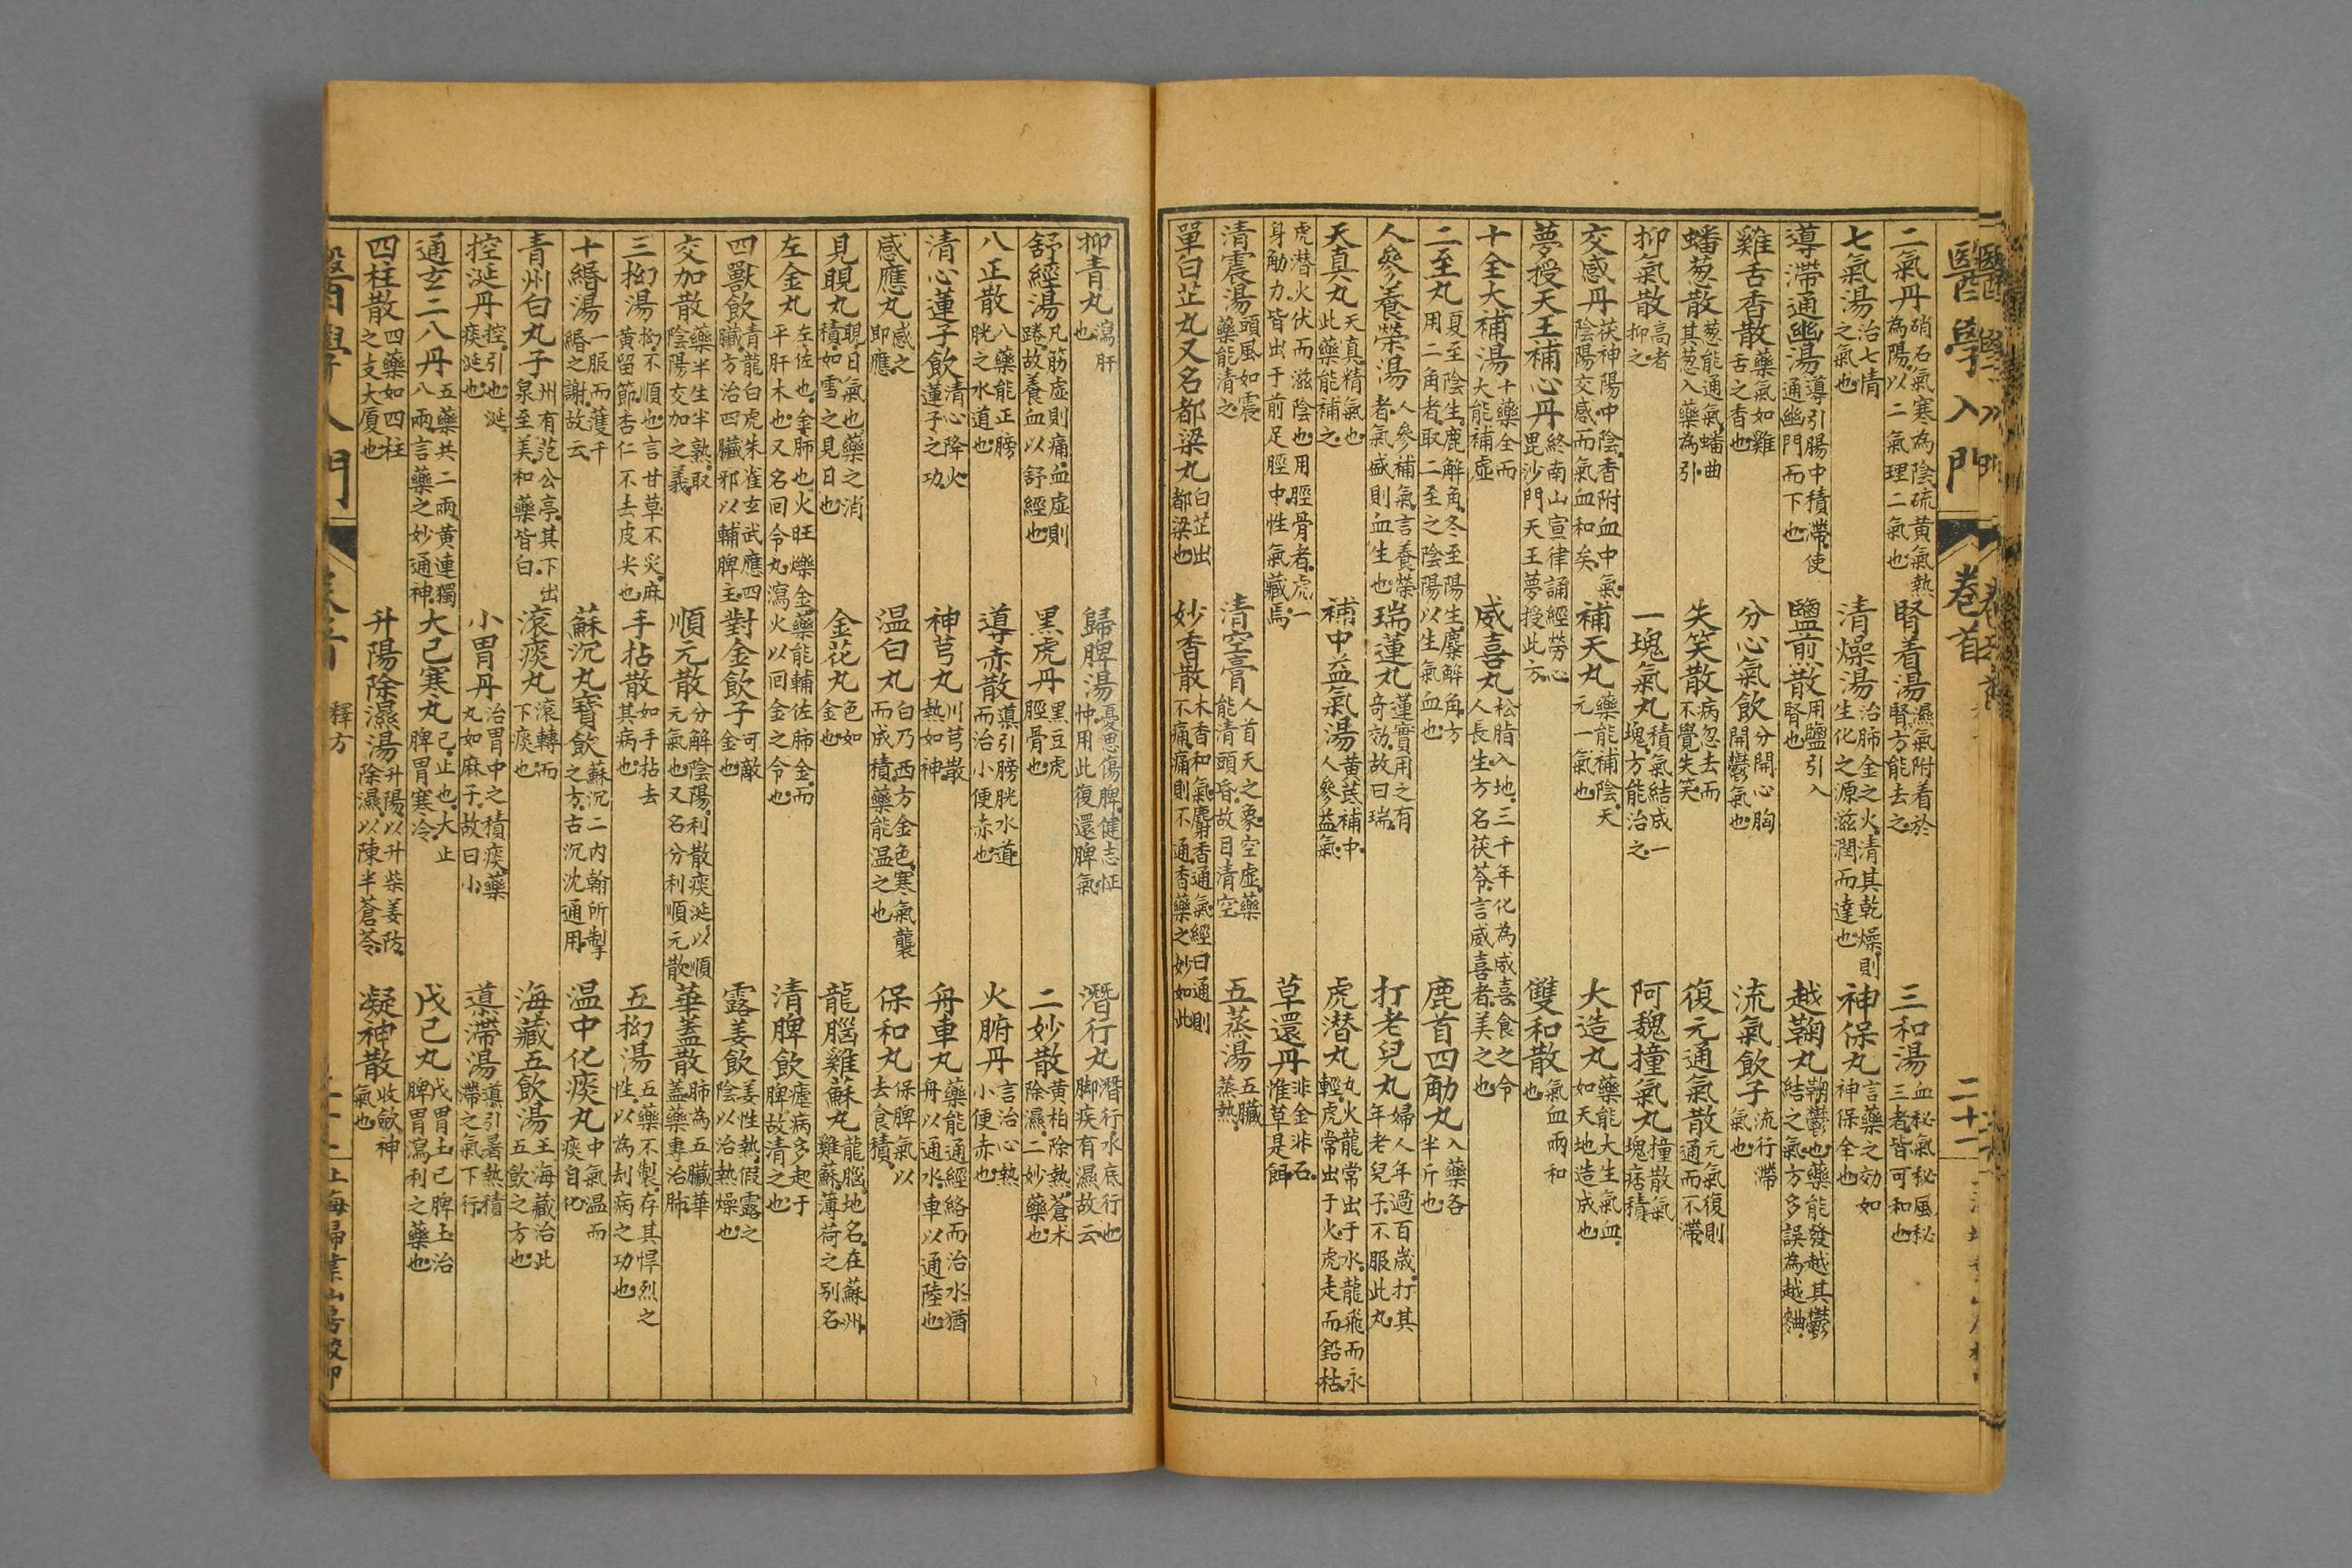 醫學入門 卷首 二十一
二氣丹 硝石氣寒為陰硫黃氣熱為陽以二氣理二氣也 腎着湯 濕氣附着於腎方能去之 三和湯 血秘氣秘風秘三者皆可和也
七氣湯 治七情之氣也 清燥湯 治肺金之火清其乾燥則生化之源滋潤而達也 神保丸 言藥之効如神保全也
導滯通幽湯 導引腸中積滯使通幽門而下也 鹽煎散 用鹽引入腎也 越鞠丸 鞠鬱也藥能發越其鬱結之氣方多誤為越麯
雞舌香散 藥氣如雞舌之香也 分心氣飲 分開心胸開鬱氣也 流氣飲子 流行滯氣也
蟠葱散 葱能通氣蟠曲其葱入藥為引 失笑散 病忽去而不覺失笑 復元通氣散 元氣復則通而不滯
抑氣散 高者抑之 一塊氣丸 積氣結成一塊方能治之 阿魏撞氣丸 撞散氣塊痞積
交感丹 茯神陽中陰香附血中氣陰陽交感而氣血和矣 補天丸 藥能補陰天元一氣也 大造丸 藥能大生氣血如天地造成也
夢授天王補心丹 終南山宣律誦經勞心毘沙門天王夢授此方 雙和散 氣血兩和也
十全大補湯 十藥全而大能補虛 威喜丸 松脂入地三千年化為威喜食之令人長生方名茯苓言威喜者美之也
二至丸 夏至陰生鹿解角冬至陽生麋解角方用二角者取二至之陰陽以生氣血也 鹿首四觔丸 入藥各半斤也
人參養榮湯 人參補氣言養榮者氣盛則血生也 瑞蓮丸 蓮實用之有奇効故曰瑞 打老兒丸 婦人年過百歲打其年老兒子不服此丸
天真丸 天真精氣也此藥能補之 補中益氣湯 黃芪補中人參益氣 虎潜丸 丸火龍常出于水龍飛而永輕虎常出于火虎走而鉛枯
虎潜火伏而滋陰也用脛骨者虎一身觔力皆出于前足脛中性氣藏焉 草還丹 非金非石惟草是餌
清震湯 頭風如震藥能清之 清空膏 人首天之象空虛藥能清頭昏故目清空 五蒸湯 五臟蒸熱
單白芷丸又名都梁丸 白芷出都梁也 妙香散 木香和氣麝香通氣經曰通則不痛痛則不通香藥之妙如此
抑青丸 瀉肝也 歸脾湯 憂思傷脾健志怔忡用此復還脾氣 潛行丸 潛行水底行也脚疾有濕故云
舒經湯 凡筋虛則痛血虛則踡故養血以舒經也 黑虎丹 黑豆虎脛骨也 二妙散 黃柏除熱蒼术除濕二妙藥也
八正散 八藥能正膀胱之水道也 導赤散 導引膀胱水道而治小便赤也 火腑丹 言治心熱小便赤也
清心蓮子飲 清心降火蓮子之功 神芎丸 川芎散熱如神 舟車丸 藥能通經絡而治水猶舟以通水車以通陸也
感應丸 感之即應 温白丸 白乃西方金色寒氣襲而成積藥能温之也 保和丸 保脾氣以去食積
見睍丸 睍日氣也藥之消積如雪之見日也 金花丸 色如金也 龍腦雞蘇丸 龍腦地名在蘇州雞蘇薄荷之别名
左金丸 左佐也金肺也火旺爍金藥能輔佐肺金而平肝木也又名回令丸瀉火以回金之令也 清脾飲 瘧病多起于脾故清之也
四獸飲 青龍白虎朱雀玄武應四臟方治四臟邪以輔脾主 對金飲子 可敵金也 露姜飲 姜性熱假露之陰以治熱燥也
交加散 藥半生半熟取陰陽交加之義 順元散 分解陰陽利散痰涎以順元氣也又名分利順元散 華蓋散 肺為五臟華蓋藥專治肺
三拗湯 拗不順也言甘草不炙麻黃留節杏仁不去皮尖也 手拈散 如手拈去其病也 五拗湯 五藥不製存其悍烈之性以為刦病之功也
十緡湯 一服而獲千緡之謝故云 蘇沉丸寶飲 蘇沉二内翰所製之方古沉沈通用 温中化痰丸 中氣温而痰自化
青州白丸子 州有范公亭其下出泉至美和藥皆白 滚痰丸 滚轉而下痰也 海藏五飲湯 王海藏治此五飲之方也
控涎丹 控引也涎痰涎也 小胃丹 治胃中之積痰藥丸如麻子故曰小 導滯湯 導引暑熱積滯之氣下行
通玄二八丹 五藥共二兩黃連獨八兩言藥之妙通神 大已寒丸 已止也大止脾胃寒冷 戊己丸 戊胃土己脾土治脾胃瀉利之藥也
四柱散 四藥如四柱之支大厦也 升陽除濕湯 升陽以升柴姜防除濕以陳半蒼苓 凝神散 收歛神氣也
醫學入門 卷首 釋方 上海掃葉山房